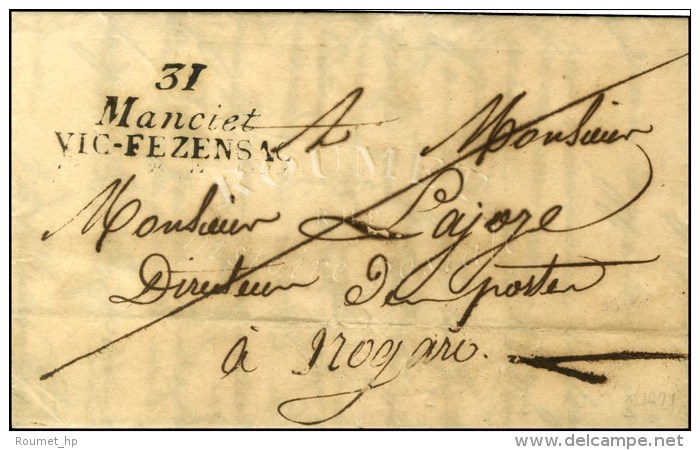 31
Manciet
VIC-FEZENSAC
A Monsieur
Monsieur Lajoze
Directeur Des postes
à Nogaro.
ROUMET
Roumet_hp
www.delcampe.net